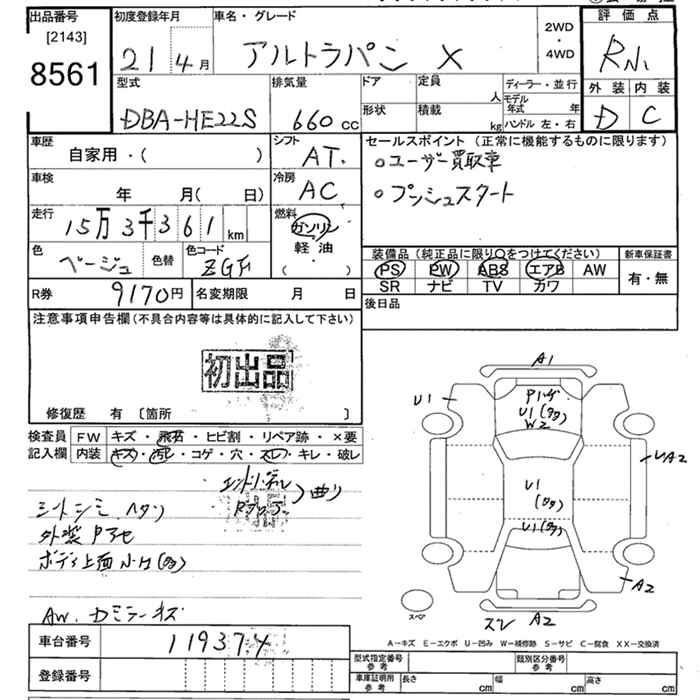 出品番号
[2143]
8561
初度登録年月
21 4月
車名・グレード
アルトラパン X
2WD
・
4WD
評価点
外装 内装
D C
型式
DBA-HE22S
排気量
660 cc
ドア
定員
人
形状
積載
kg
ディーラー・並行
モデル年式 年
ハンドル 左・右
車歴
自家用・( )
シフト
AT.
車検
年 月( 日)
冷房
AC
走行
15万3千361 km
燃料
ガソリン
軽油
( )
色
ベージュ
色替
色コード
R券
9170円
名変期限 月 日
セールスポイント (正常に機能するものに限ります)
○ユーザー買取車
○プッシュスタート
装備品(純正品に限り○をつけてください)
PS PW ABS エアB AW
SR ナビ TV カワ
新車保証書
有・無
後日品
注意事項申告欄(不具合内容等は具体的に記入して下さい)
初出品
修復歴 有 〔箇所 〕
検査員記入欄
FW キズ・飛石・ヒビ割・リペア跡・×要
内装 キズ・汚レ・コゲ・穴・スレ・キレ・破レ
シートシミ ヘタリ
ボディ上面小キ(多)
AW. Dミラーキズ
車台番号
119374
登録番号
A1
U1
U1(多)
W2
U1
(多)
U1(多)
A2
A2
A2
スペア
A-キズ E-エクボ U-凹み W-補修跡 S-サビ C-腐食 XX-交換済
型式指定番号 参考
類別区分番号 参考
車庫証明用 参考
長さ cm
幅 cm
高さ cm